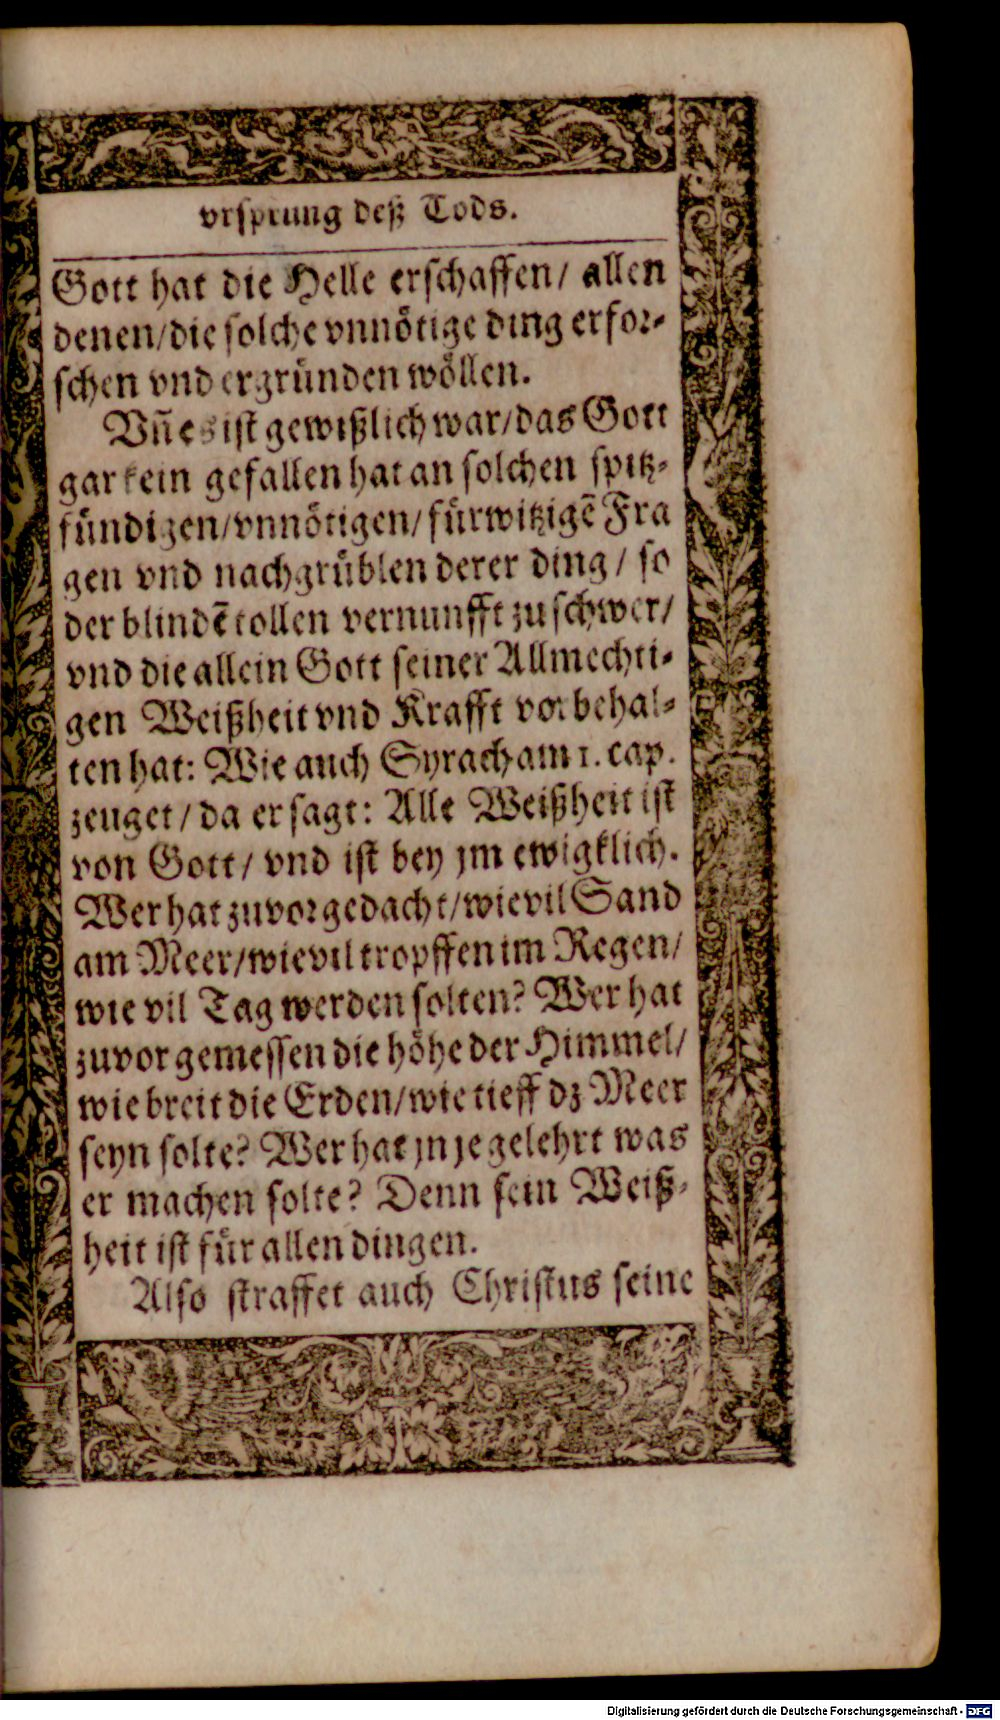 vrsprung deß Tods.
Gott hat die Helle erschaffen/ allen
denen/die solche vnnötige ding erfor-
schen vnd ergründen wöllen.
Vñ es ist gewißlich war/das Gott
gar kein gefallen hat an solchen spitz-
fündigen/vnnötigen/fürwitzigẽ Fra
gen vnd nachgrüblen derer ding/ so
der blindẽ tollen vernunfft zu schwer/
vnd die allein Gott seiner Allmechti-
gen Weißheit vnd Krafft vorbehal-
ten hat: Wie auch Syrach am 1. cap.
zeuget/ da er sagt: Alle Weißheit ist
von Gott/ vnd ist bey jm ewigklich.
Wer hat zuvor gedacht/wievil Sand
am Meer/wievil tropffen im Regen/
wie vil Tag werden solten? Wer hat
zuvor gemessen die höhe der Himmel/
wie breit die Erden/wie tieff dz Meer
seyn solte? Wer hat jn je gelehrt was
er machen solte? Denn sein Weiß-
heit ist für allen dingen.
Also straffet auch Christus seine
Digitalisierung gefördert durch die Deutsche Forschungsgemeinschaft - DFG